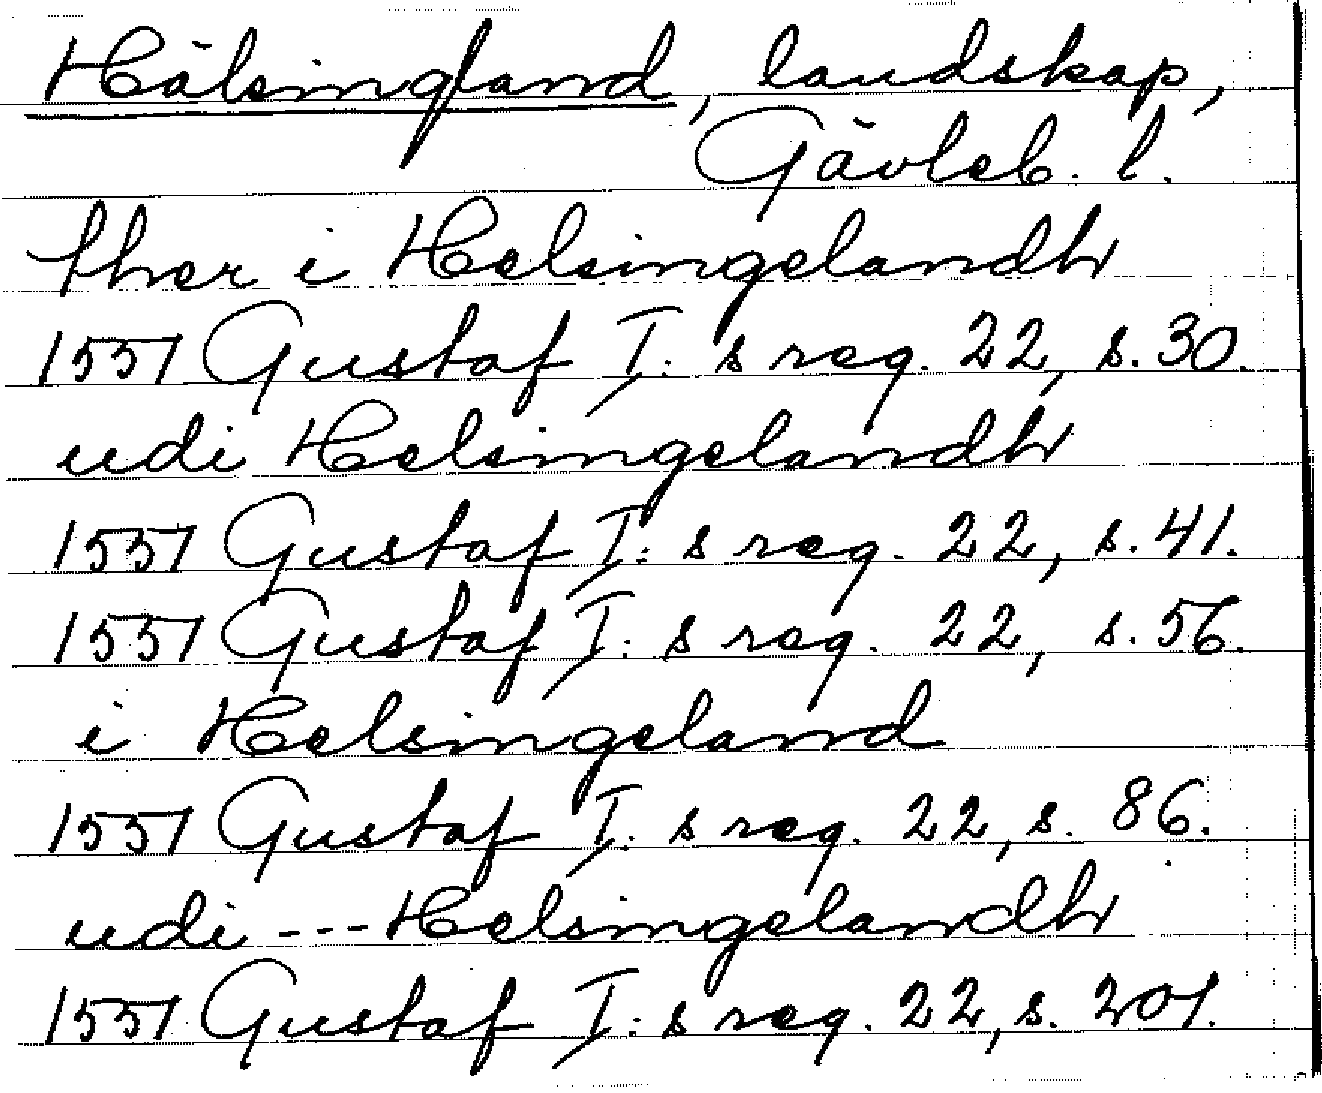 Hälsingland, landskap,
Gävleb. l.
ther i Helsingelandh
1551 Gustaf I: s reg. 22, s. 30.
udi Helsingelandh
1551 Gustaf I: s reg. 22, s. 41.
1551 Gustaf I: s reg. 22, s. 56.
i Helsingeland
1551 Gustaf I: s reg. 22, s. 86.
udi --- Helsingelandh
1551 Gustaf I: s reg. 22, s. 201.